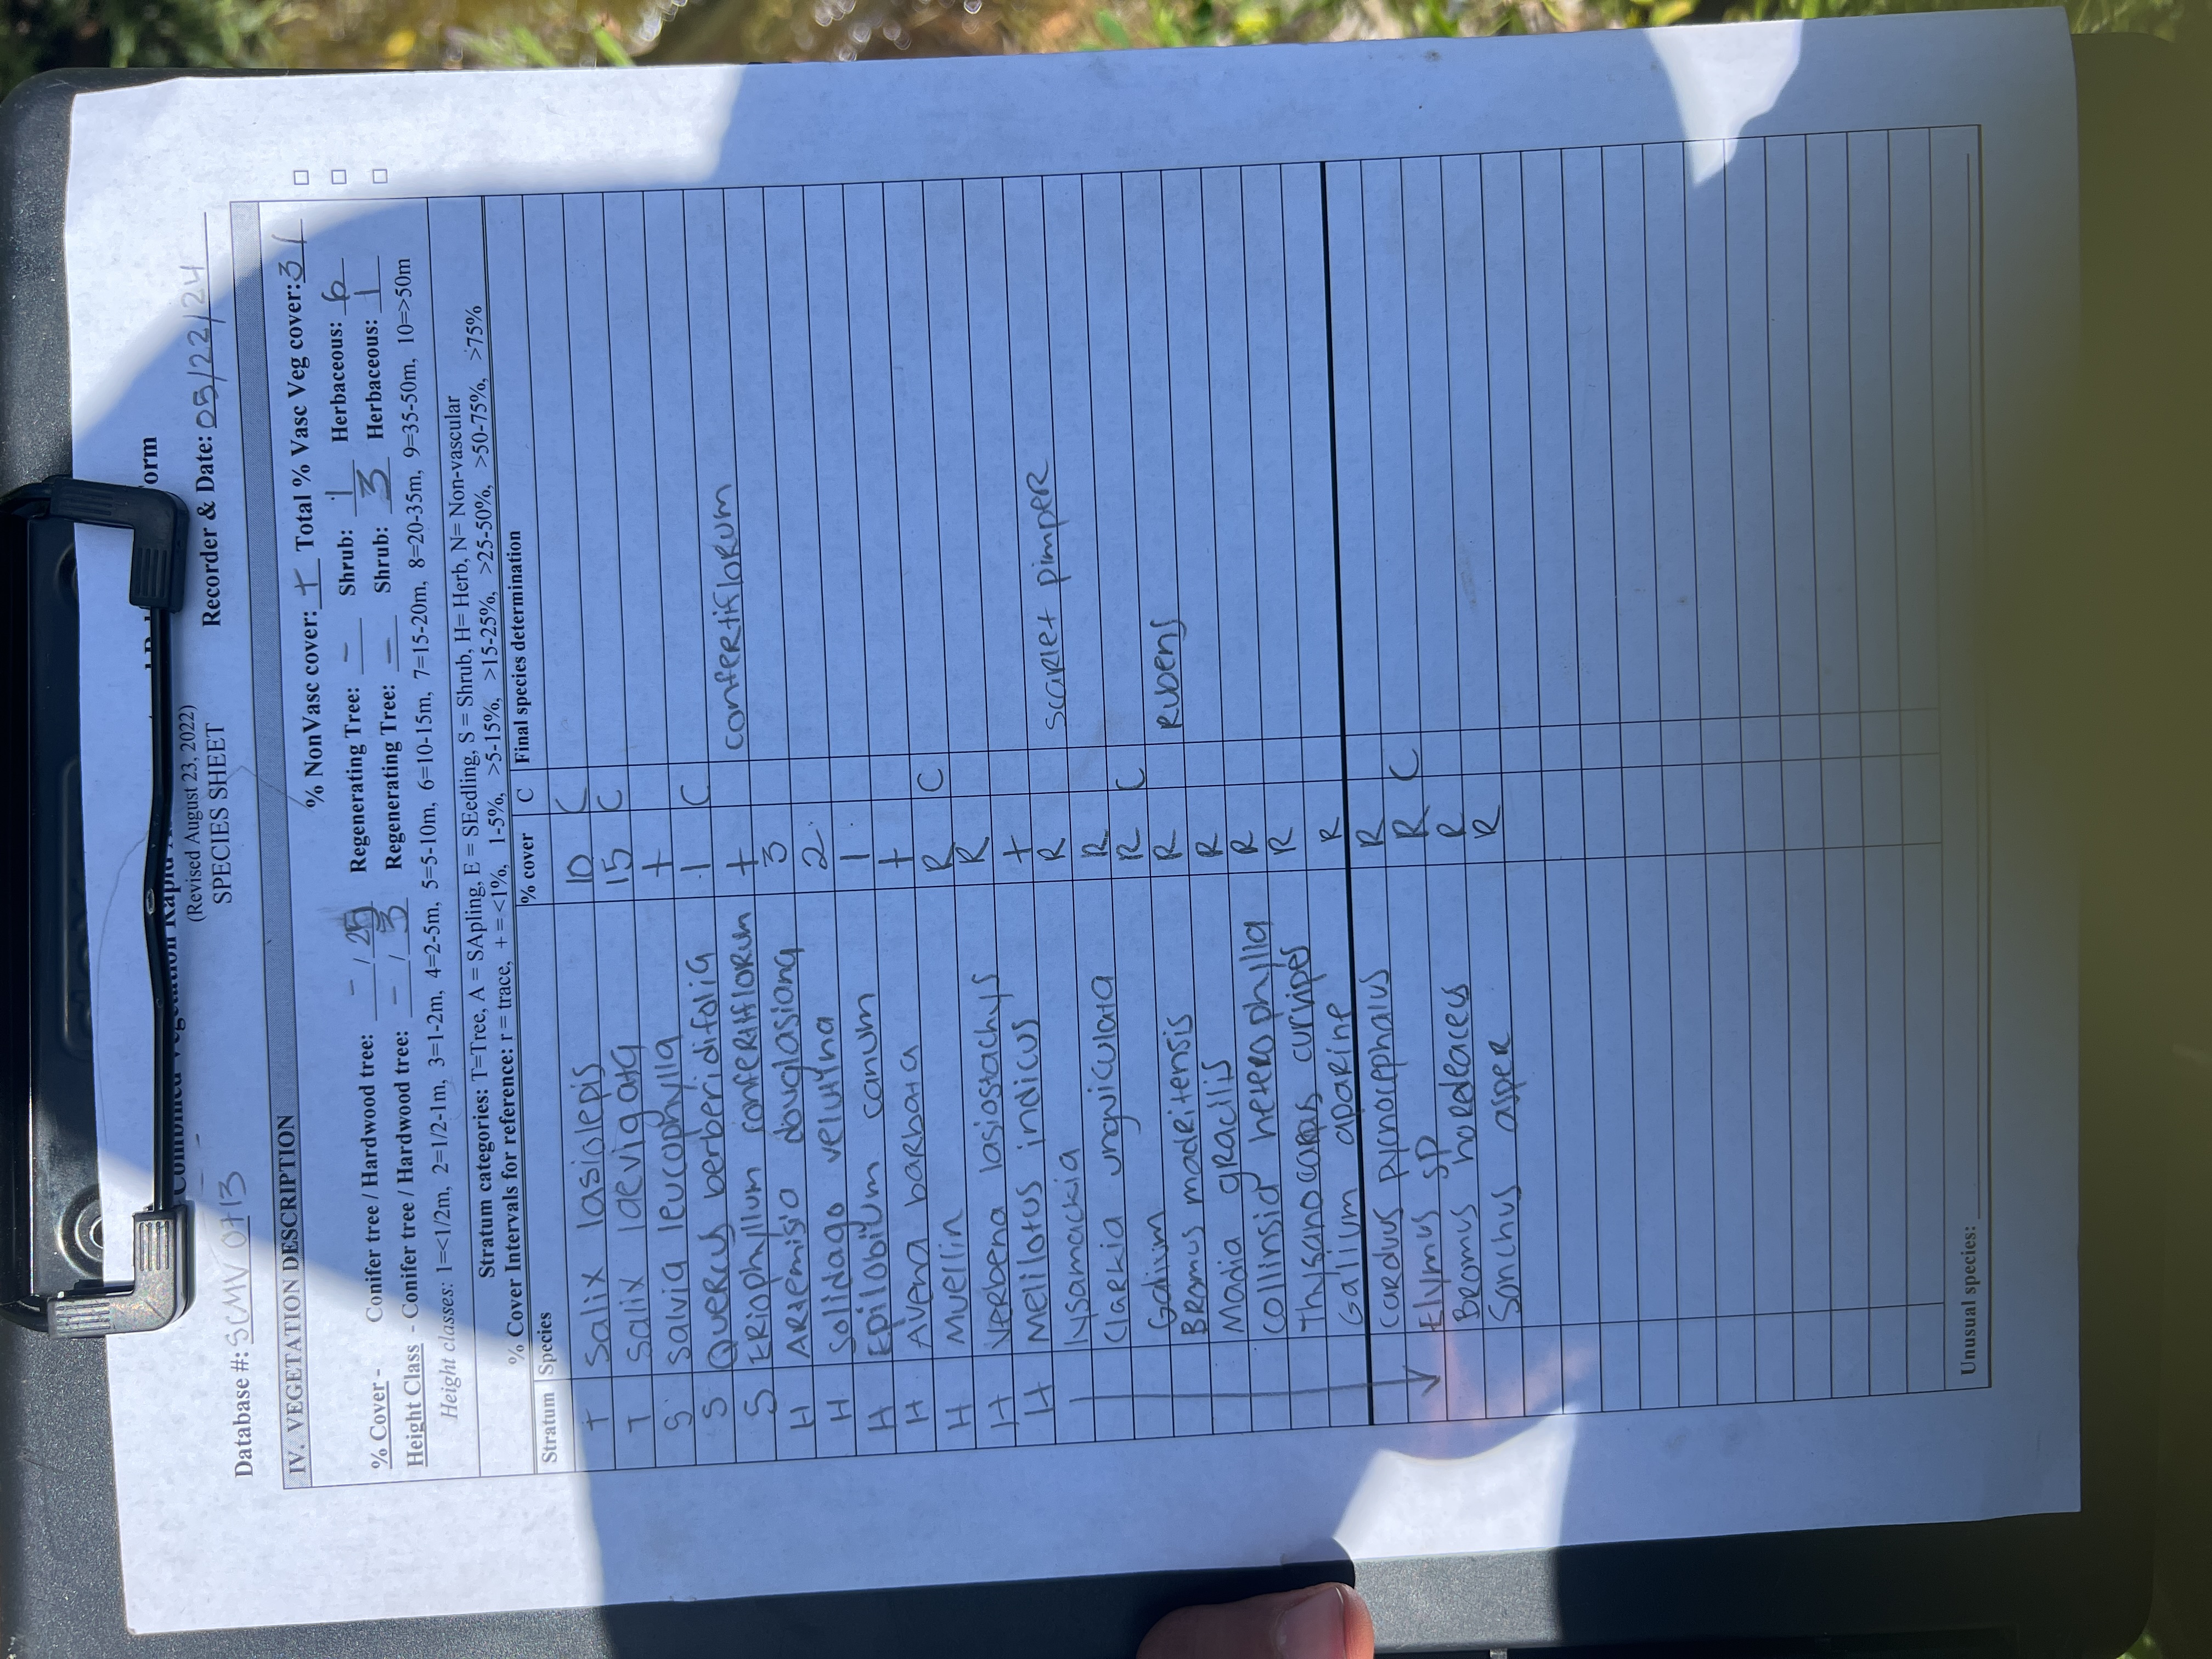 Combined Vegetation Rapid
orm
(Revised August 23, 2022)
SPECIES SHEET
Database #: SCMV0713 Recorder & Date: 05/22/24
IV. VEGETATION DESCRIPTION
% NonVasc cover: + Total % Vasc Veg cover: 31
% Cover - Conifer tree / Hardwood tree: - / Regenerating Tree: - Shrub: 1 Herbaceous: 6
Height Class - Conifer tree / Hardwood tree: - / 3 Regenerating Tree: - Shrub: 3 Herbaceous: 1
Height classes: 1=<1/2m, 2=1/2-1m, 3=1-2m, 4=2-5m, 5=5-10m, 6=10-15m, 7=15-20m, 8=20-35m, 9=35-50m, 10=>50m
Stratum categories: T=Tree, A = SApling, E = SEedling, S = Shrub, H= Herb, N= Non-vascular
% Cover Intervals for reference: r = trace, + = <1%, 1-5%, >5-15%, >15-25%, >25-50%, >50-75%, >75%
Stratum Species % cover C Final species determination
T Salix lasiolepis 10 C
T Salix laevigata 15 C
S Salvia leucophylla +
S Quercus berberidifolia 1 C
S Eriophyllum confertiflorum + confertiflorum
H Artemisia douglasiana 3
H Solidago velutina 2
H Epilobium canum 1
H Avena barbata +
H Muellin R C
H Verbena lasiostachys R
H Melilotus indicus +
lysamackia R scarlet pimper
Clarkia unguiculata R
Galium R C
Bromus madritensis R Rubens
Madia gracilis R
Collinsia heterophylla R
Thysanocarpus curvipes R
Galium aparine R
Carduus pycnocephalus R
Elymus sp R C
Bromus hordeaceus R
Sonchus asper R
Unusual species: